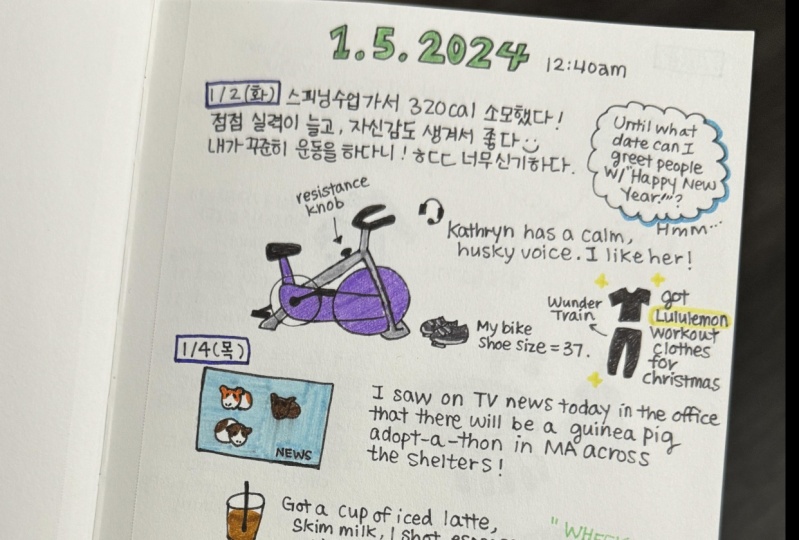 1.5.2024 12:40am
1/2(화) 스피닝수업가서 320cal 소모했다!
점점 실력이 늘고, 자신감도 생겨서 좋다
내가 꾸준히 운동을 하다니! ㅎㄷㄷ 너무신기하다.
Until what
date can I
greet people
w/ "Happy New
Year!"?
Hmm...
resistance
knob
Kathryn has a calm,
husky voice. I like her!
My bike
shoe size = 37.
Wunder
Train
got
Lululemon
workout
clothes
for
christmas
1/4(목)
NEWS
I saw on TV news today in the office
that there will be a guinea pig
adopt-a-thon in MA across
the shelters!
Got a cup of iced latte,
skim milk, 1 shot